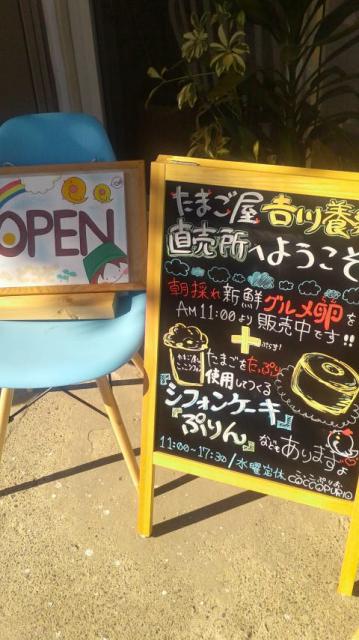 OPEN
たまご屋 吉川養
直売所へようこそ
朝採れ新鮮グルメ卵を
AM11:00より販売中です!!
+
ぷらす!
たまごをたっぷり
使用してつくる
『シフォンケーキ』
『ぷりん』などもありますよ
11:00~17:30/水曜定休
COCCOPURIO